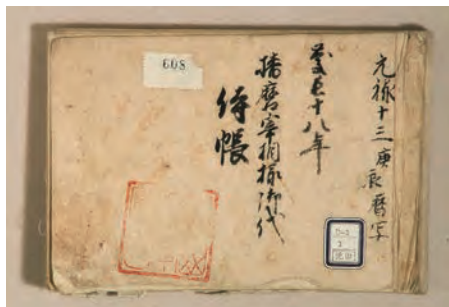 元禄十三庚辰暦写
慶長十八年
播磨宰相様御代
侍帳
608